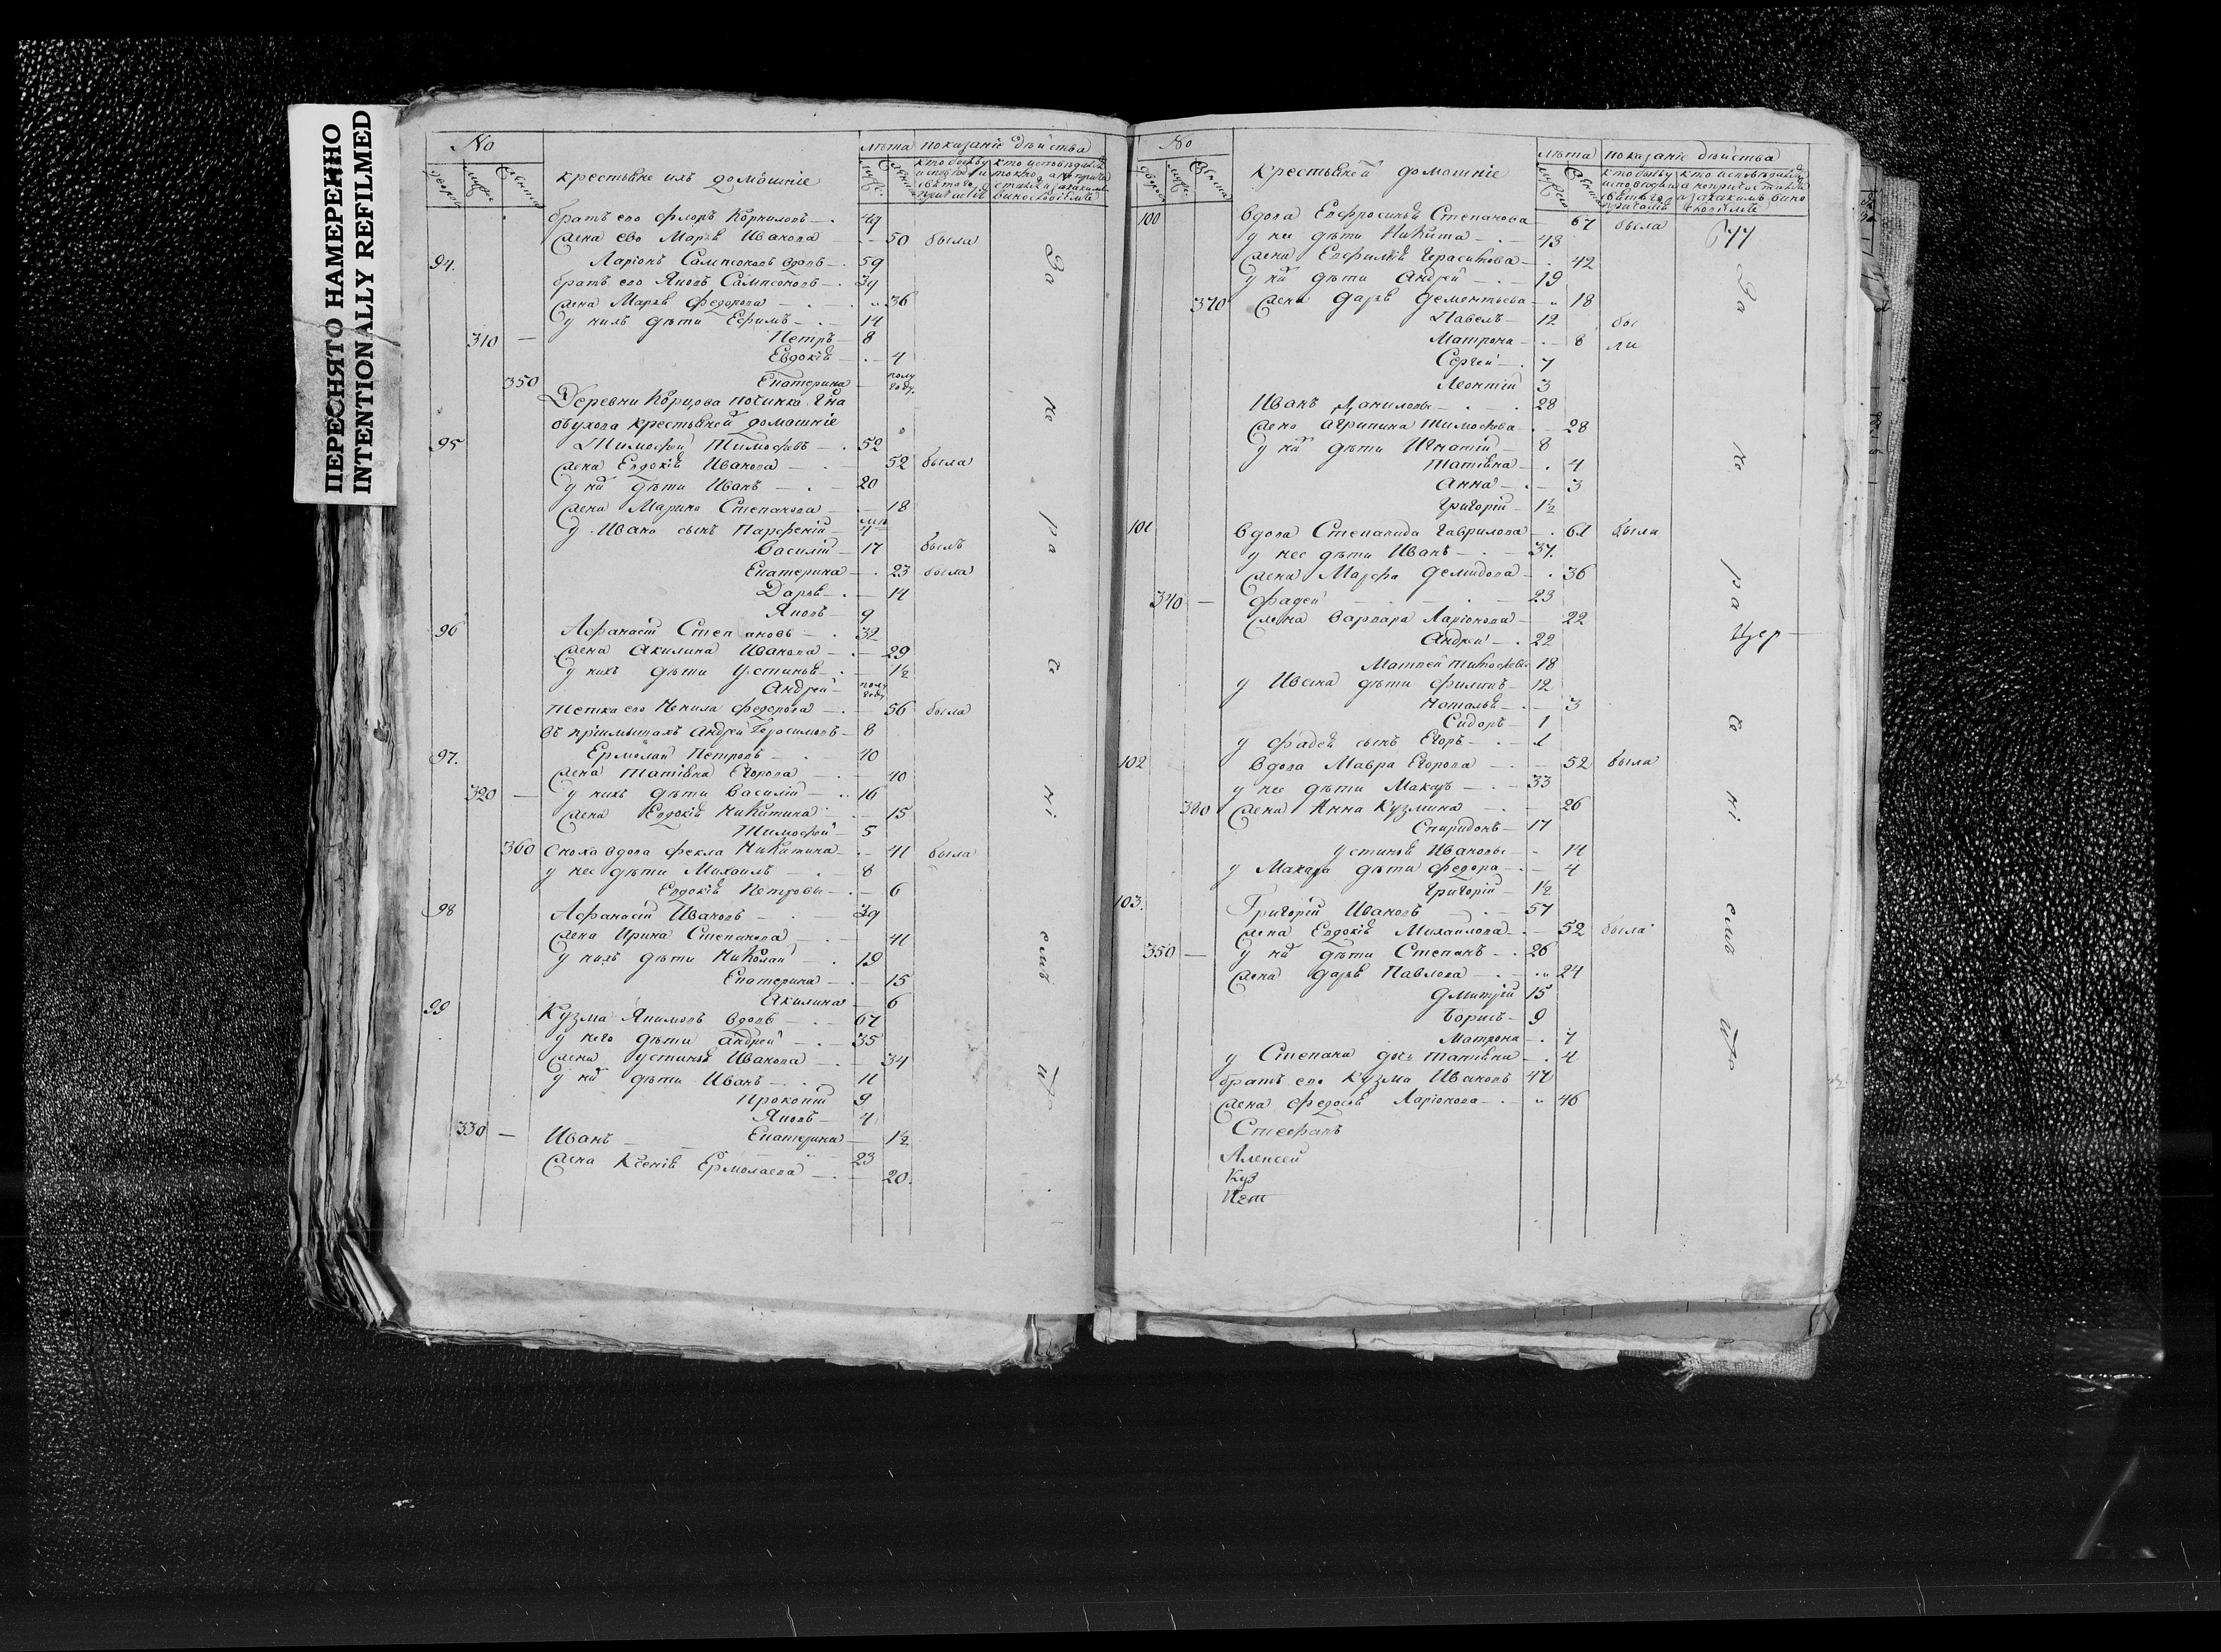 ПЕРЕСНЯТО НАМЕРЕННО
INTENTIONALLY REFILMED
No
лѣта показаніе дѣйства
крестьяне ихъ домашніе
братъ его Флоръ Корниловъ 49
жена ево Марья Иванова 50 была
94. Ларіонъ Сампсоновъ вдовъ 59
братъ его Яковъ Сампсоновъ 39
жена Марья Федорова 36
у нихъ дѣти Ефимъ 14
310 Петръ 8
Евдокія 4
350 Екатерина полугоду.
Деревни починка
крестьяней домашніе
95 Тимофей Тимофѣевъ 52
жена Евдокія Иванова 52 была
у ней дѣти Иванъ 20
жена Марина Степанова 18
у Ивана сынъ Парфеній
Василій 17 былъ
Екатерина 23 была
Дарья 14
Яковъ 9
96 Афанасій Степановъ 32
жена Акилина Иванова 29
у нихъ дѣти Устинья 1½
Андрей полугоду
тетка его Ненила Федорова 56 была
въ пріимышахъ Андрей Герасимовъ 8
97. Ермолай Петровъ 40
жена Татіяна Егорова 40
320 у нихъ дѣти Василій 16
жена Евдокія Никитина 15
Тимофей 5
360 Сноха вдова Фекла Никитина 41 была
у нее дѣти Михаилъ 8
Евдокія Петровы 6
98 Афанасій Ивановъ 39
жена Ирина Степанова 41
у нихъ дѣти Николай 19
Екатерина 15
Акилина 6
99 Кузма Якимовъ вдовъ 67
у него дѣти Андрей 35
жена Устинья Иванова 34
у ней дѣти Иванъ 11
Прокопій 9
Яковъ 4
330 Иванъ Екатерина 1½
23
жена Ксенія Ермолаева 20.
За не ра че ні емъ
No
лѣта показаніе дѣйства
крестьяней домашніе
100 вдова Евфросинья Степанова 67 была
у нее дѣти Никита 43
жена Евфимія Герасимова 42
у ней дѣти Андрей 19
370 жена Дарья Дементьева 18
Павелъ 12 бы
Матрона 8 ли
Сергей 7
Леонтій 3
Иванъ Даниловъ 28
жена Агрипина Тимофѣева 28
у ней дѣти Игнатій 8
Татіяна 4
Анна 3
Григорій 1½
101 вдова Степанида Гаврилова 61 была
у нее дѣти Иванъ 37.
жена Марфа Демидова 36
340 Фадей 23
жена Варвара Ларіонова 22
Андрей 22
Матвей Тимофѣевы 18
у Ивана дѣти Филипъ 12
Наталья 3
Сидоръ 1
у Фадея сынъ Егоръ 1
102 вдова Мавра Егорова 52 была
у нее дѣти Макаръ 33
380 жена Анна Кузмина 26
Спиридонъ 17
Устинья Ивановы 14
у Макара дѣти Федора 4
Григорій 1½
103. Григорій Ивановъ 57
жена Евдокія Михаилова 52 была
350 у ней дѣти Степанъ 26
жена Дарья Павлова 24
Дмитрій 15
Борисъ 9
Матрона 7
у Степана дочь Татіяна 4
братъ его Кузма Ивановъ 47
жена Федосья Ларіонова 46
Стефанъ
Алексей
Куз
Пет
За не ра че ні емъ